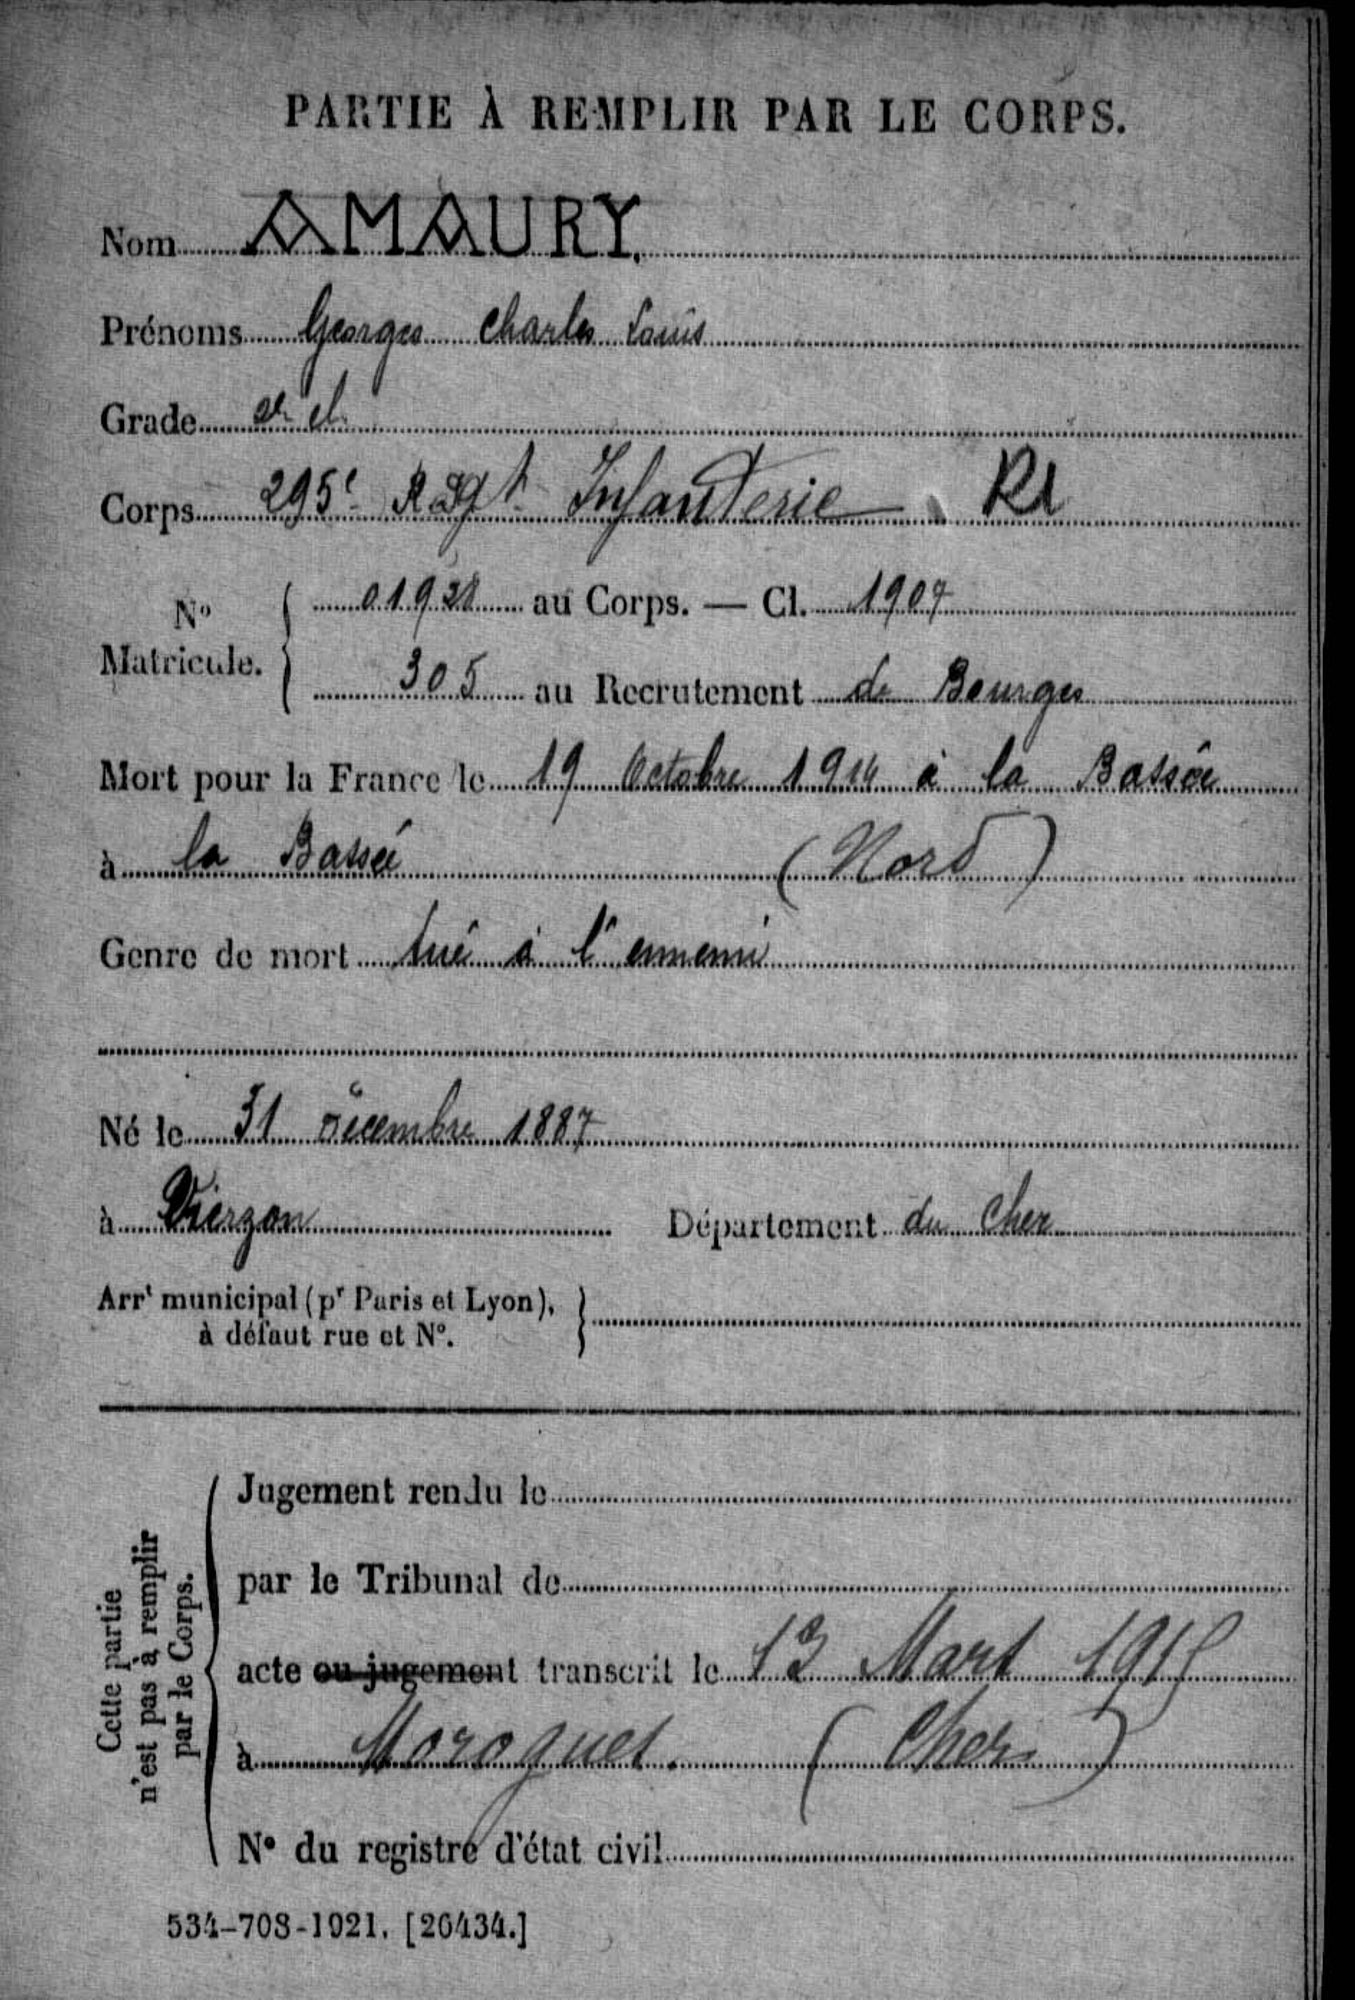 PARTIE À REMPLIR PAR LE CORPS.
Nom AMAURY.
Prénoms Georges Charles Louis
Grade 2e cl.
Corps 295e Regt Infanterie RI
No Matricule. 01928 au Corps. — Cl. 1907
305 au Recrutement de Bourges
Mort pour la France le 19 Octobre 1914 à la Bassée
à la Bassée (Nord)
Genre de mort tué à l'ennemi
Né le 31 décembre 1887
à Vierzon Département du Cher
Arrt municipal (pr Paris et Lyon),
à défaut rue et No.
Cette partie
n'est pas à remplir
par le Corps.
Jugement rendu le
par le Tribunal de
acte ou jugement transcrit le 13 Mars 1915
à Morogues. (Cher)
No du registre d'état civil
534-708-1921. [26434.]